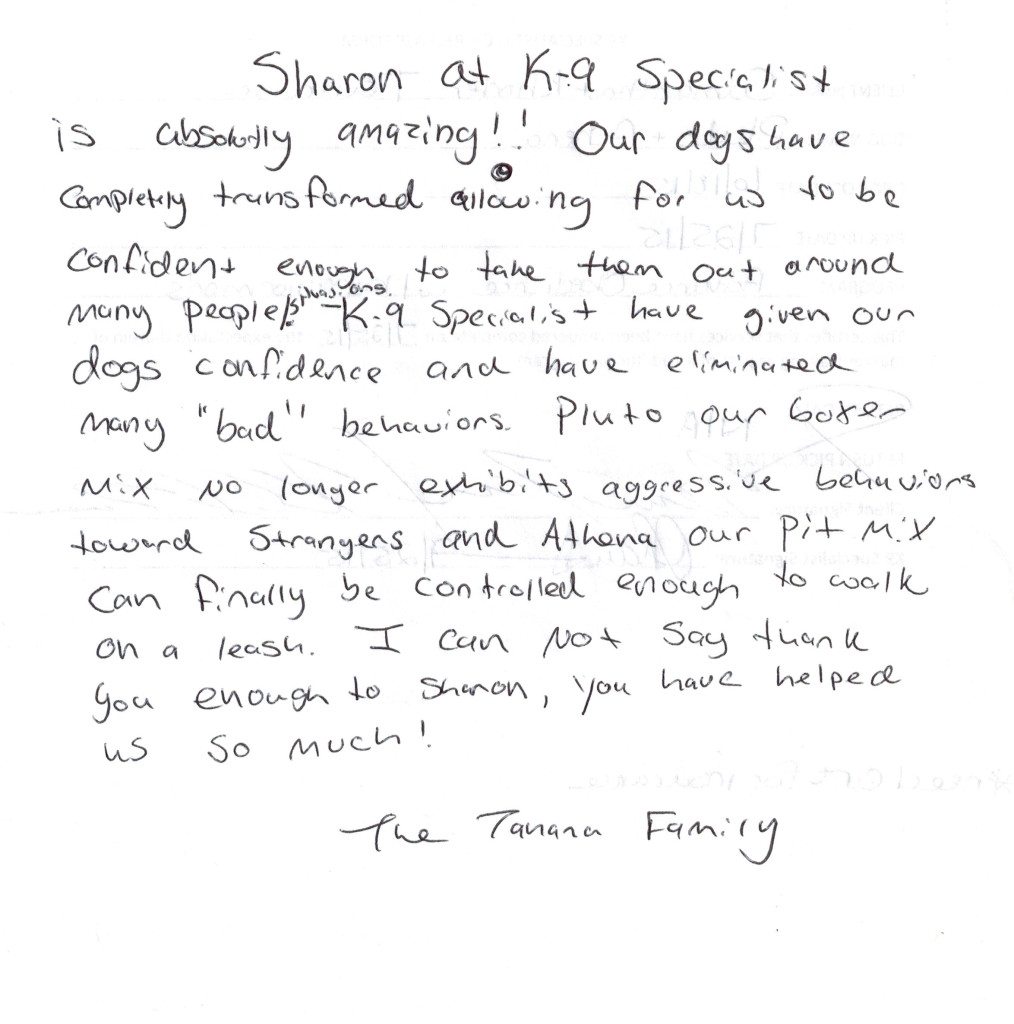 Sharon at K-9 Specialist
is absolutly amazing!! Our dogs have
completely transformed allowing for us to be
confident enough to take them out around
many people/situations. K-9 Specialist have given our
dogs confidence and have eliminated
many "bad" behaviors. Pluto our boxer
mix no longer exhibits aggressive behaviors
toward strangers and Athena our pit mix
can finally be controlled enough to walk
on a leash. I can not say thank
you enough to Sharon, you have helped
us so much!
The Tanana Family